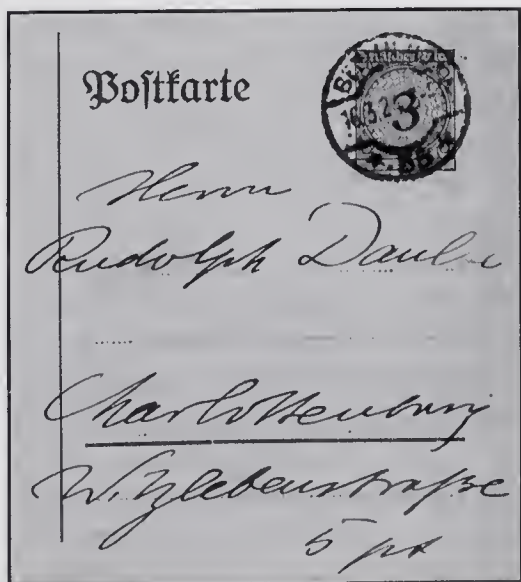 Postkarte
3
Herrn
Rudolph Daube
Charlottenburg
Witzlebenstraße
5 pt